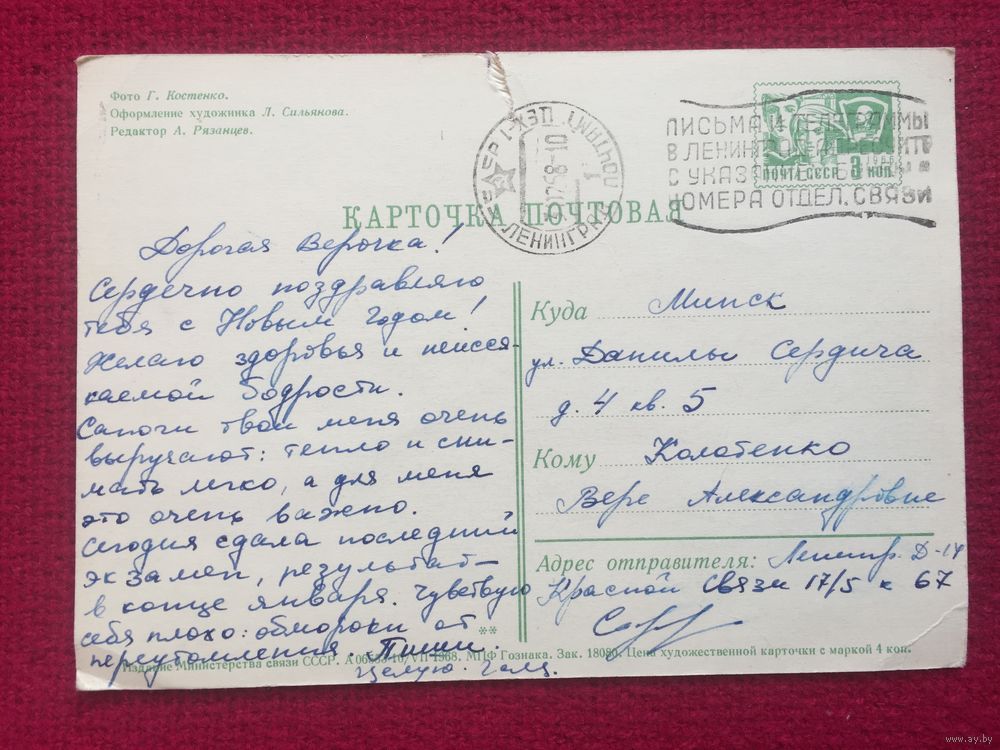 Фото Г. Костенко.
Оформление художника Л. Сильянова.
Редактор А. Рязанцев.
ПОЧТАМТ
ЛЕНИНГРАД
ПИСЬМА И ТЕЛЕГРАММЫ
В
С
НОМЕРА ОТДЕЛ. СВЯЗИ
1966
ПОЧТА СССР 3 КОП
КАРТОЧКА ПОЧТОВАЯ
Дорогая Верочка!
Сердечно поздравляю
тебя с Новым Годом!
Желаю здоровья и неисся-
каемой бодрости.
Сапоги твои меня очень
выручают: тепло и сни-
мать легко, а для меня
это очень важно.
Сегодня сдала последний
экзамен, результат –
в конце января. Чувствую
себя плохо: обмороки от
переутомления. Пиши.
Целую.
Куда Минск
ул. Данилы Сердича
д. 4 кв. 5
Кому Колотенко
Вере Александровне
Адрес отправителя: Ленингр. Д-14
Красной Связи 17/5 к 67
**
Издание Министерства связи СССР. 1968. МПФ Гознака. Зак. 18080. Цена художественной карточки с маркой 4 коп.
www.ay.by